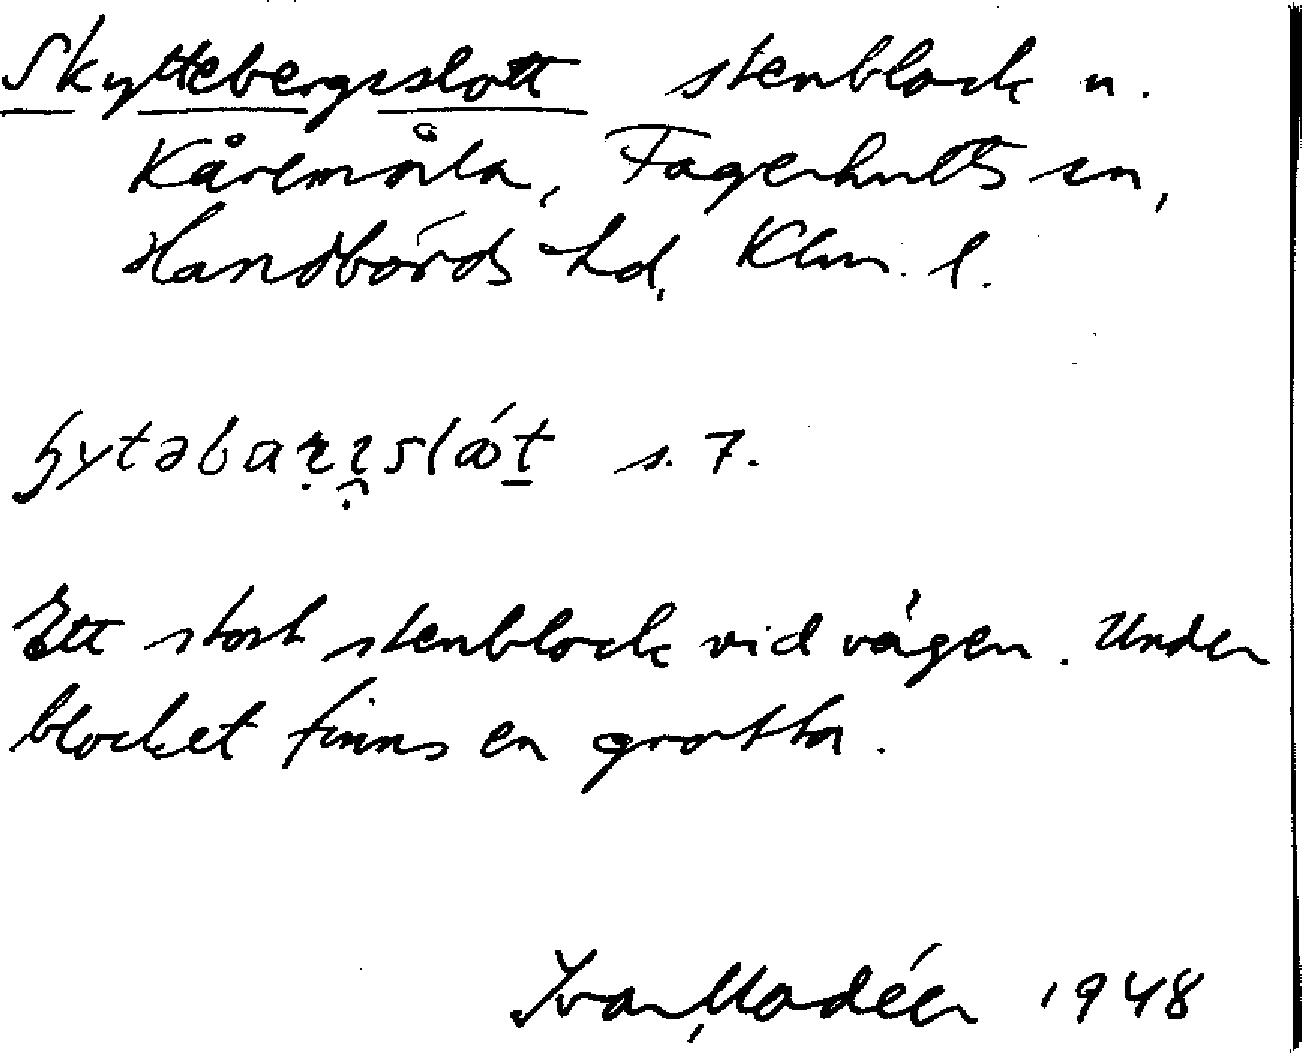 Skyttebergsslott stenblock u.
Kåremåla, Fagerhults sn,
Handbörds hd, Klm. l.
s. 7.
Ett stort stenblock vid vägen. Under
blocket finns en grotta.
Ivar Modéer 1948